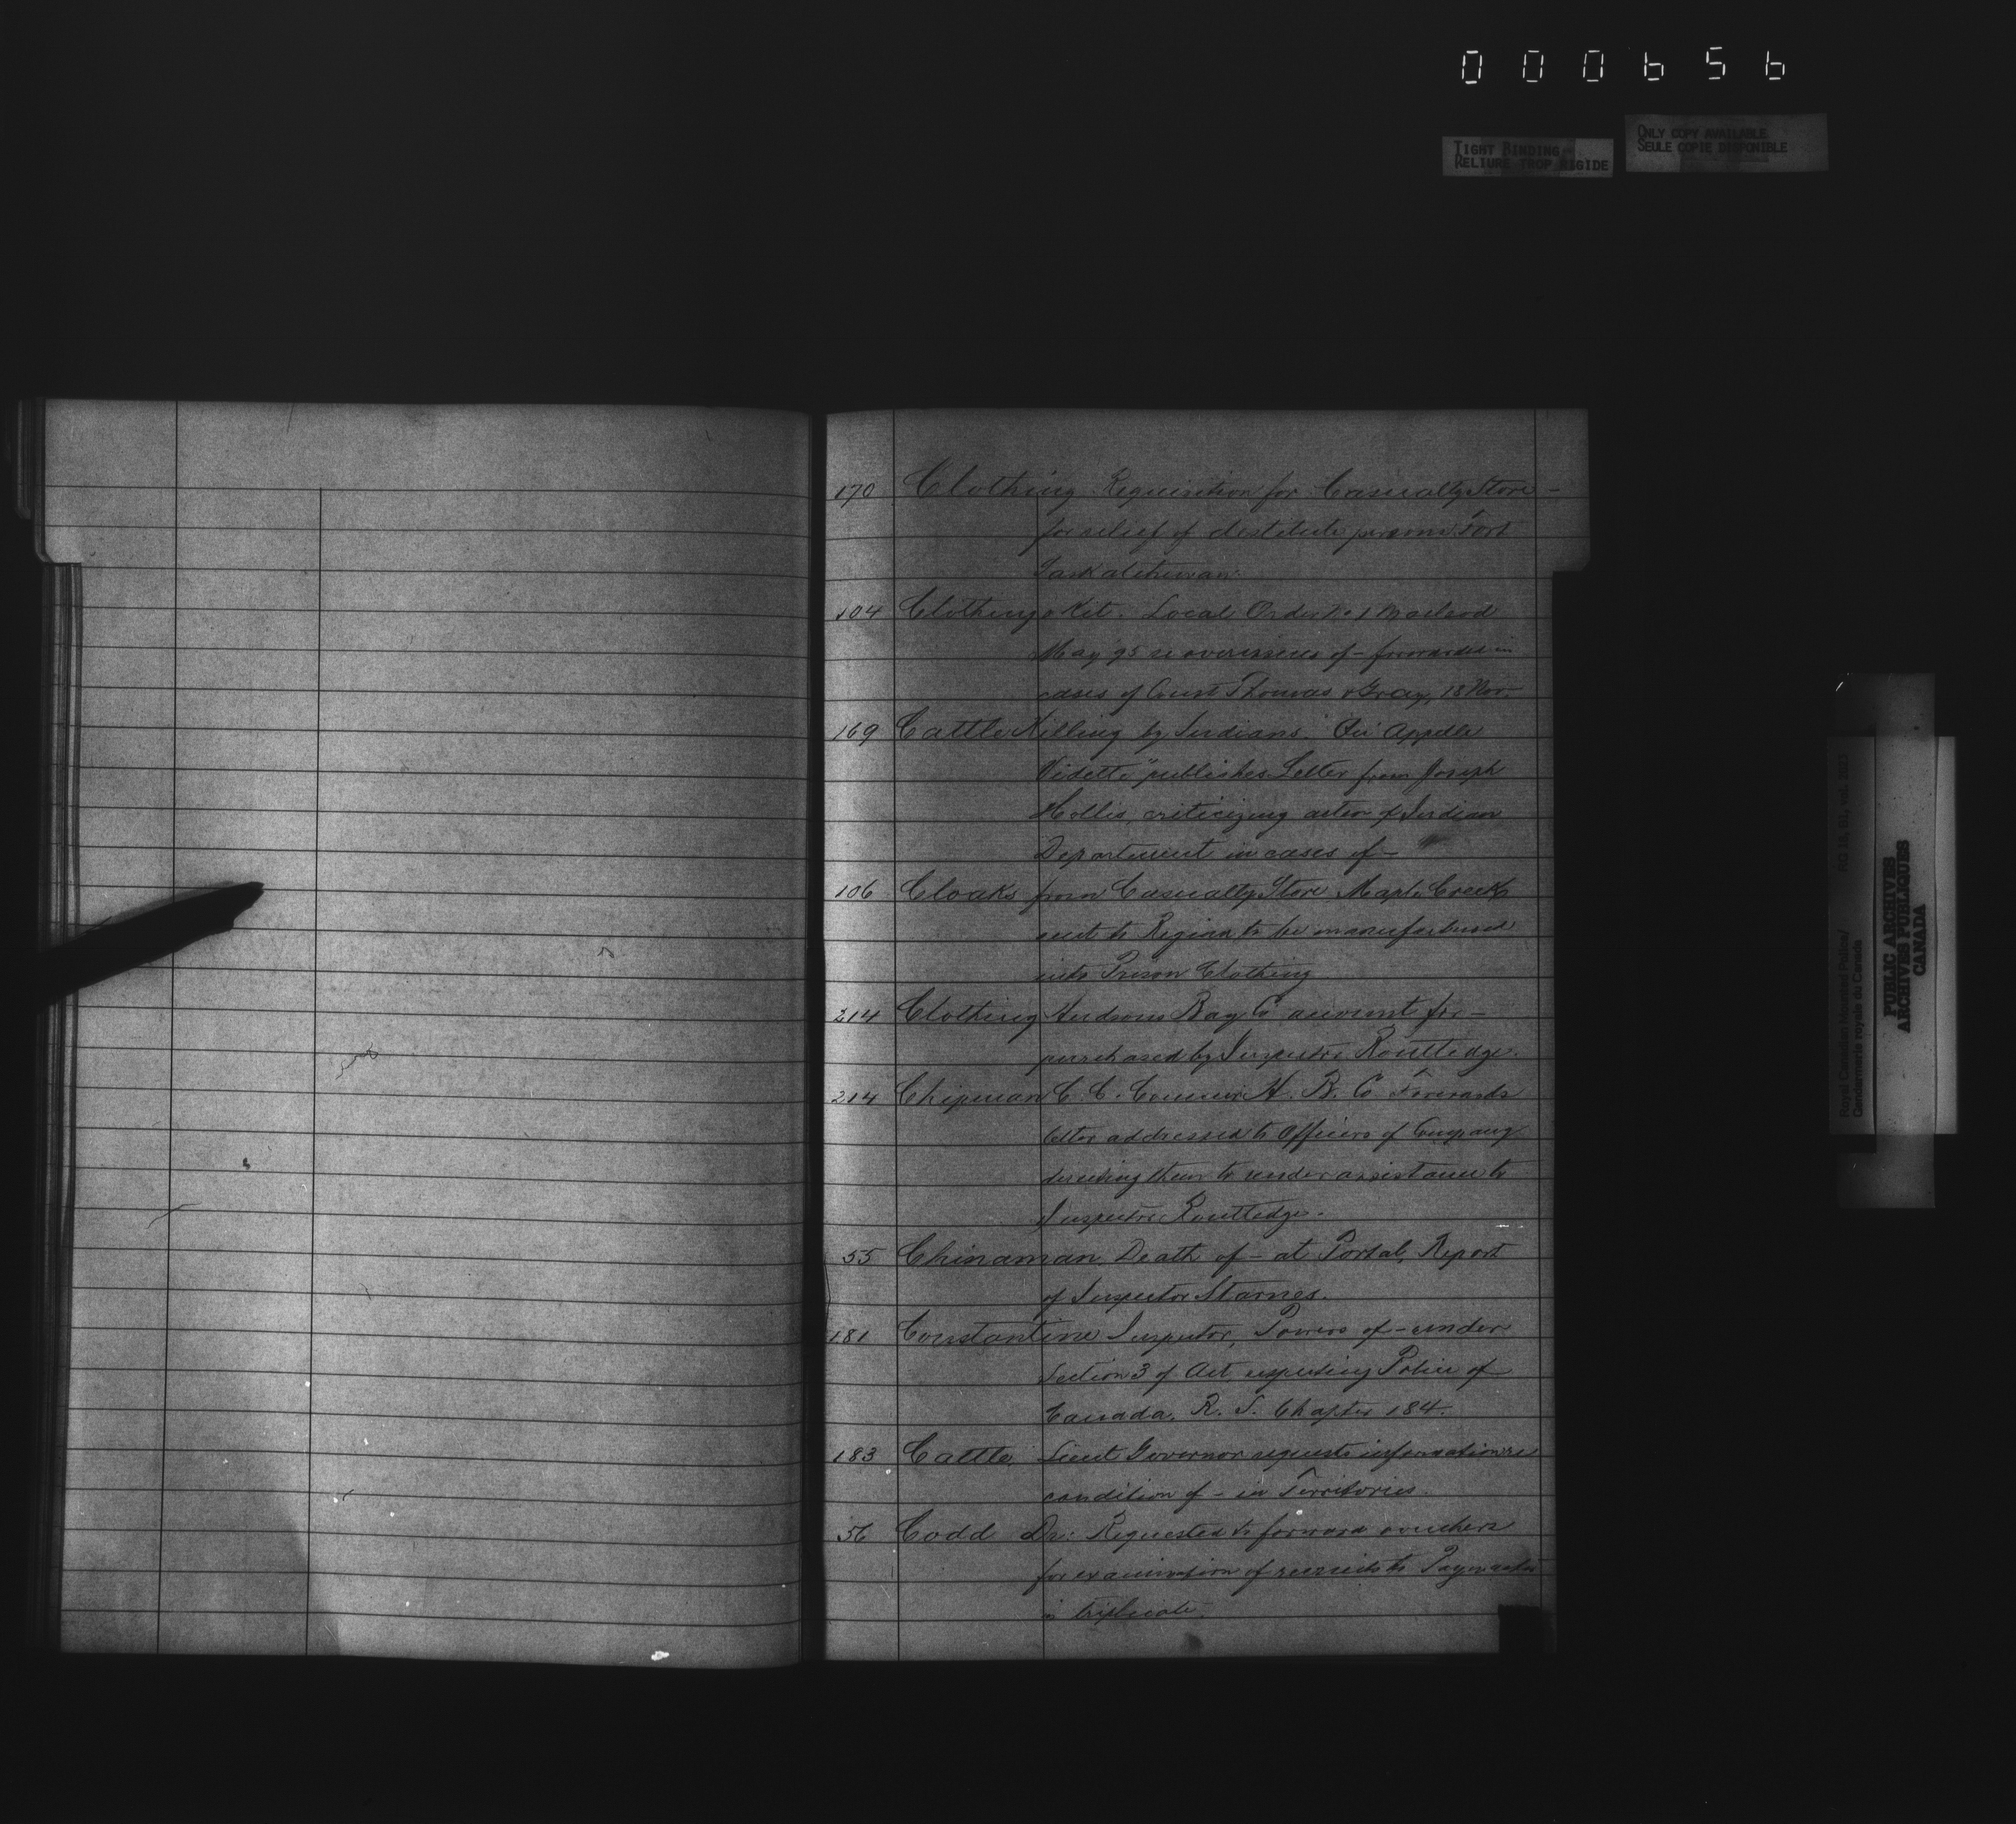 000656
TIGHT BINDING-
RELIURE TROP RIGIDE
ONLY COPY AVAILABLE
SEULE COPIE DISPONIBLE
170 Clothing Requisition for Casualty Store -
for relief of destitute persons Fort
Saskatchewan.
104 Clothing & Kit. Local Order No 1 Macleod
May 95 re overissues of - forwarded in
cases of Const Thomas & Gray, 18 Nov.
169 Cattle Killing by Indians. "Qu' Appelle
Vidette" publishes Letter from Joseph
Hollis, criticizing action of Indian
Department in cases of -
106 Cloaks from Casualty Store Maple Creek
sent to Regina to be manufactured
into Prison Clothing
214 Clothing Hudsons Bay Co account for -
purchased by Inspector Routledge.
214 Chipman C. C. Commr H. B. Co Forwards
letter addressed to Officers of Company
directing them to render assistance to
Inspector Routledge.
55 Chinaman Death of - at Portal, Report
of Inspector Starnes.
181 Constantine Inspector, Powers of - under
Section 3 of Act respecting Police of
Canada. R. S. Chapter 184.
183 Cattle Lieut Governor requests information re
condition of - in Territories.
56 Codd Dr: Requested to forward vouchers
for examination of recruits to Paymaster
in triplicate.
Royal Canadian Mounted Police/
Gendarmerie royale du Canada
PUBLIC ARCHIVES
ARCHIVES PUBLIQUES
CANADA